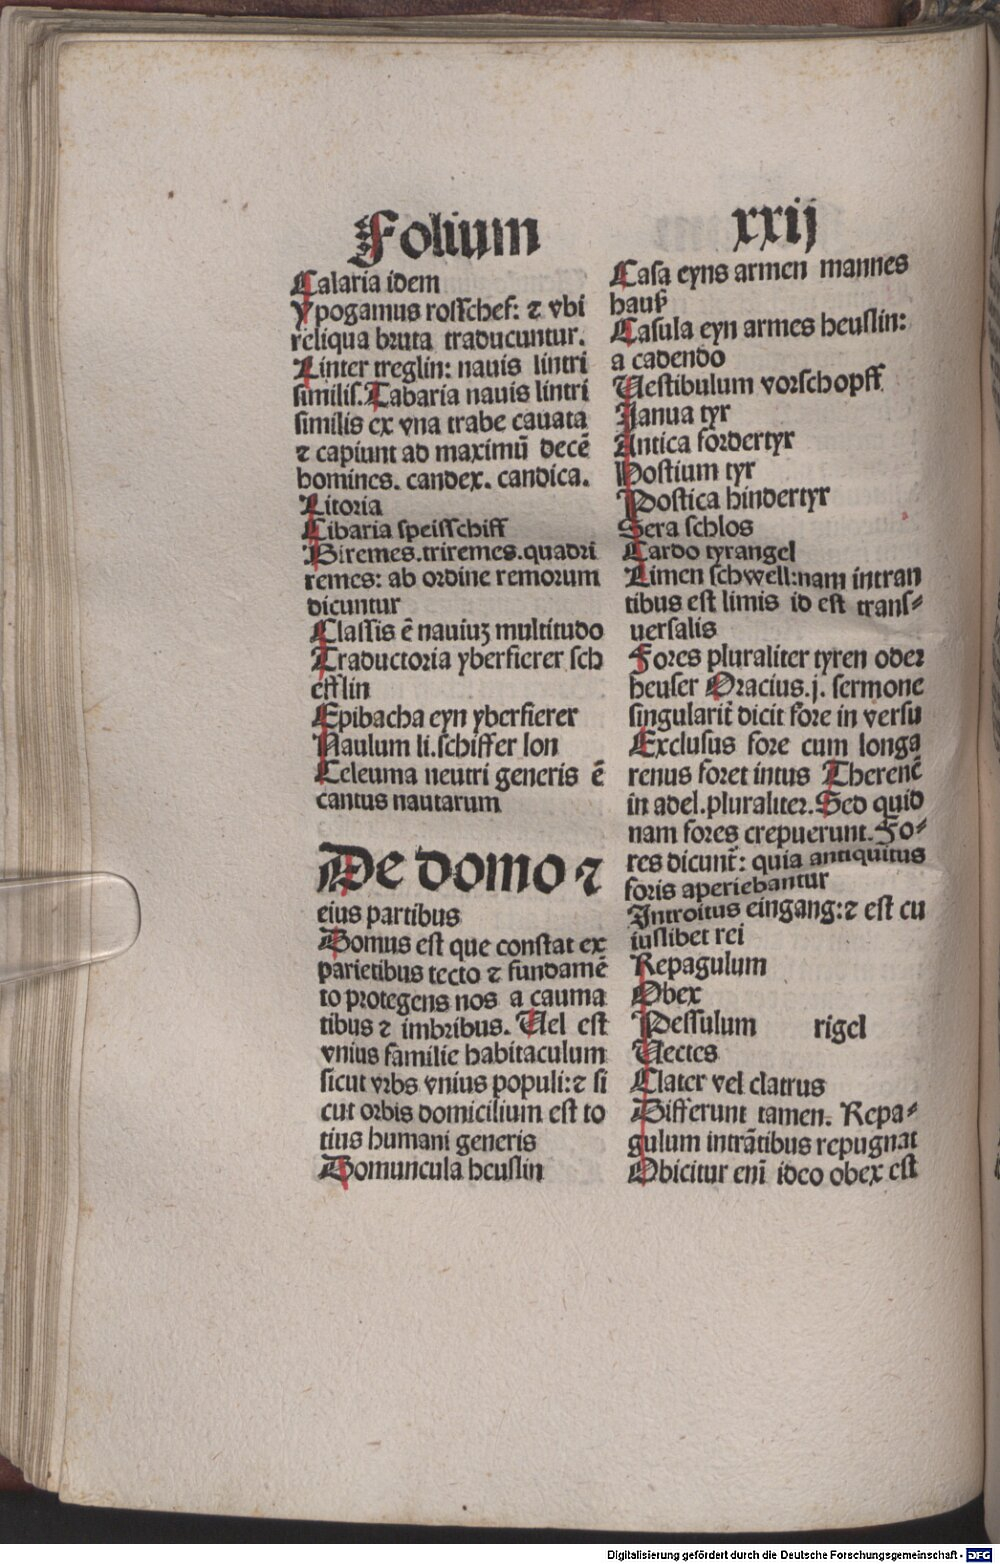 Folium xxij
Calaria idem
Ypogamus rosſchef: ⁊ vbi
reliqua bruta traducuntur.
Linter treglin: nauis lintri
ſimilis. Tabaria nauis lintri
ſimilis ex vna trabe cauata
⁊ capiunt ad maximū decē
homines. candex. candica.
Litoria
Cibaria ſpeiſſchiff
Biremes.triremes.quadri
remes: ab ordine remorum
dicuntur
Claſſis ē nauiuꝫ multitudo
Traductoria yberfierer ſch
efflin
Epibacha eyn yberfierer
Naulum li.ſchiffer lon
Celeuma neutri generis ē
cantus nautarum
De domo ⁊
eius partibus
Domus eſt que conſtat ex
parietibus tecto ⁊ fundamē
to protegens nos a cauma
tibus ⁊ imbribus. Uel eſt
vnius familie habitaculum
ſicut vrbs vnius populi:⁊ ſi
cut orbis domicilium eſt to
tius humani generis
Domuncula heuſlin
Caſa eyns armen mannes
hauß
Caſula eyn armes heuſlin:
a cadendo
Ueſtibulum vorſchopff
Janua tyr
Antica fordertyr
Hoſtium tyr
Poſtica hindertyr
Sera ſchlos
Cardo tyrangel
Limen ſchwell:nam intran
tibus eſt limis id eſt tranſ⸗
uerſalis
Fores pluraliter tyren oder
heuſer Oracius.j. ſermone
ſingularit̄ dicit fore in verſu
Excluſus fore cum longa
renus foret intus Therenē
in adel.pluraliter. Sed quid
nam fores crepuerunt. Fo⸗
res dicunt̄: quia antiquitus
foris aperiebantur
Introitus eingang:⁊ eſt cu
iuſlibet rei
Repagulum
Obex
Peſſulum rigel
Uectes
Clater vel clatrus
Differunt tamen. Repa⸗
gulum intrātibus repugnat
Obicitur enī ideo obex eſt
Digitalisierung gefördert durch die Deutsche Forschungsgemeinschaft - DFG